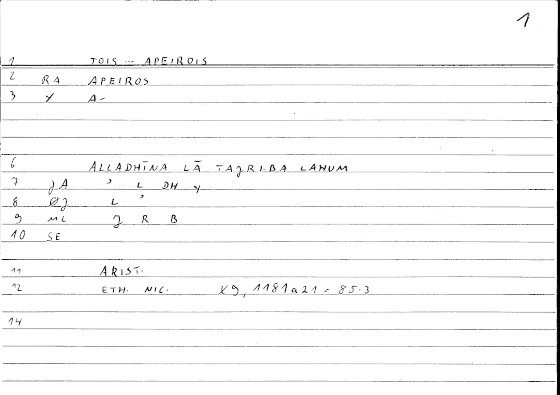 1
1 TOIS -- APEIROIS
2 RA APEIROS
3 Y A-
6 ALLADHĪNA LĀ TAJRIBA LAHUM
7 JA ' L DH Y
8 ØJ L '
9 ML J R B
10 SE
11 ARIST.
12 ETH. NIC. X9, 1181a21 = 85.3
14